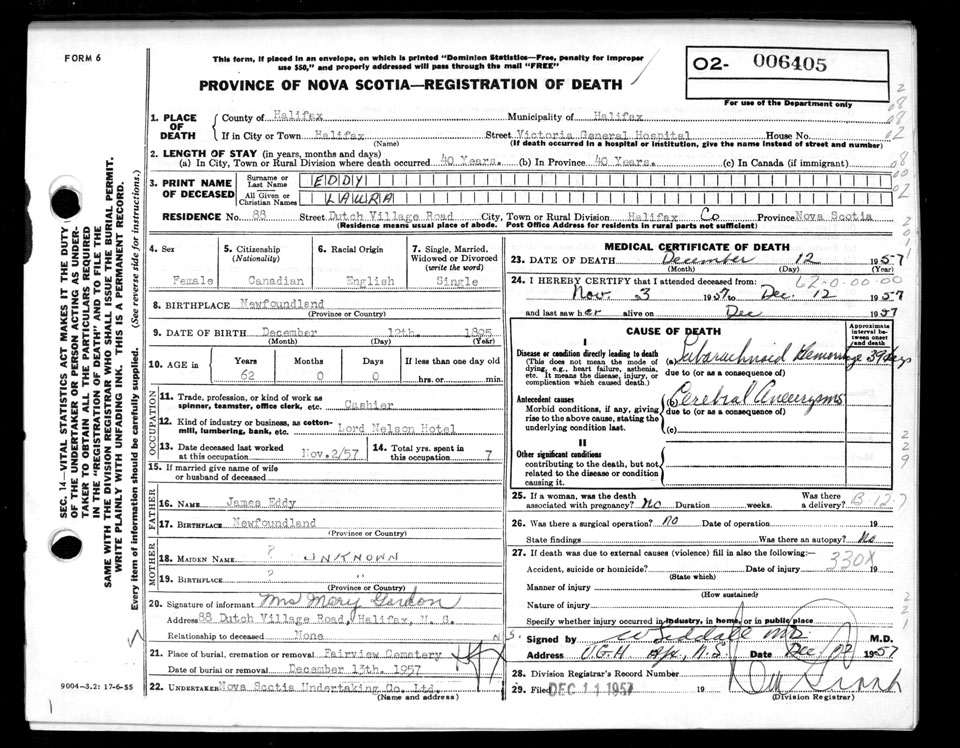 FORM 6
This form, if placed in an envelope, on which is printed "Dominion Statistics—Free, penalty for improper
use $50," and properly addressed will pass through the mail "FREE"
PROVINCE OF NOVA SCOTIA—REGISTRATION OF DEATH
02- 006405
For use of the Department only
SEC. 14—VITAL STATISTICS ACT MAKES IT THE DUTY
OF THE UNDERTAKER OR PERSON ACTING AS UNDER-
TAKER TO OBTAIN ALL THE PARTICULARS REQUIRED
IN THE "REGISTRATION OF DEATH" AND TO FILE THE
SAME WITH THE DIVISION REGISTRAR WHO SHALL ISSUE THE BURIAL PERMIT.
WRITE PLAINLY WITH UNFADING INK. THIS IS A PERMANENT RECORD.
Every item of information should be carefully supplied. (See reverse side for instructions.)
1. PLACE OF DEATH
County of Halifax Municipality of Halifax
If in City or Town Halifax Street Victoria General Hospital House No.
(Name) (If death occurred in a hospital or institution, give the name instead of street and number)
2. LENGTH OF STAY (in years, months and days)
(a) In City, Town or Rural Division where death occurred 40 Years. (b) In Province 40 Years. (c) In Canada (if immigrant)
3. PRINT NAME OF DECEASED
Surname or Last Name EDDY
All Given or Christian Names LAURA
RESIDENCE No. 88 Street Dutch Village Road City, Town or Rural Division Halifax Co Province Nova Scotia
(Residence means usual place of abode. Post Office Address for residents in rural parts not sufficient)
4. Sex 5. Citizenship (Nationality) 6. Racial Origin 7. Single, Married, Widowed or Divorced (write the word)
Female Canadian English Single
8. BIRTHPLACE Newfoundland
(Province or Country)
9. DATE OF BIRTH December 12th. 1895
(Month) (Day) (Year)
10. AGE in Years Months Days If less than one day old
62 0 0 hrs. or min.
OCCUPATION
11. Trade, profession, or kind of work as
spinner, teamster, office clerk, etc. Cashier
12. Kind of industry or business, as cotton-
mill, lumbering, bank, etc. Lord Nelson Hotel
13. Date deceased last worked
at this occupation Nov.2/57
14. Total yrs. spent in
this occupation 7
15. If married give name of wife
or husband of deceased
FATHER
16. NAME James Eddy
17. BIRTHPLACE Newfoundland
(Province or Country)
MOTHER
18. MAIDEN NAME ? UNKNOWN
19. BIRTHPLACE ? "
(Province or Country)
20. Signature of informant Mrs Mary Gordon
Address 88 Dutch Village Road, Halifax, N. S.
Relationship to deceased None
21. Place of burial, cremation or removal Fairview Cemetery
Date of burial or removal December 13th. 1957
22. UNDERTAKER Nova Scotia Undertaking Co. Ltd.
(Name and address)
9004—3.2: 17-6-55
MEDICAL CERTIFICATE OF DEATH
23. DATE OF DEATH December 12 1957
(Month) (Day) (Year)
24. I HEREBY CERTIFY that I attended deceased from:
Nov. 3 1957 to Dec. 12 1957
and last saw her alive on Dec 1957
CAUSE OF DEATH
Approximate interval between onset and death
I
Disease or condition directly leading to death
(This does not mean the mode of
dying, e.g., heart failure, asthenia,
etc. It means the disease, injury, or
complication which caused death.)
(a) Subarachnoid Hemorrhage 39 days
due to (or as a consequence of)
Antecedent causes
Morbid conditions, if any, giving
rise to the above cause, stating the
underlying condition last.
(b) Cerebral Aneurysms
due to (or as a consequence of)
(c)
II
Other significant conditions
contributing to the death, but not
related to the disease or condition
causing it.
25. If a woman, was the death
associated with pregnancy? No Duration weeks. Was there a delivery?
26. Was there a surgical operation? no Date of operation 19
State findings Was there an autopsy? No
27. If death was due to external causes (violence) fill in also the following:—
330X
Accident, suicide or homicide? Date of injury 19
(State which)
Manner of injury
(How sustained)
Nature of injury
Specify whether injury occurred in industry, in home, or in public place
Signed by M.D.
Address V.G.H Hfx, N.S Date Dec 1957
28. Division Registrar's Record Number
29. Filed DEC 11 1957 19
(Division Registrar)